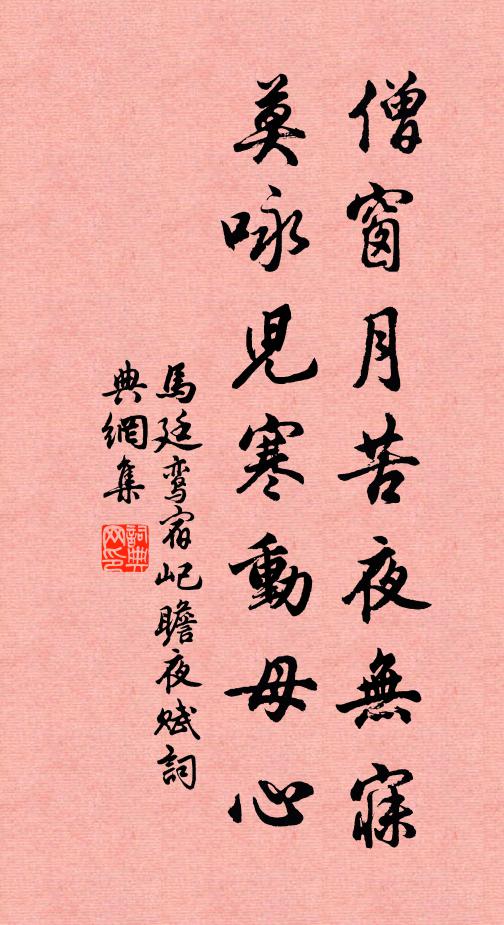 僧窗月苦夜無寐
莫咏兒寒動母心
馬廷鸾宿屺瞻夜赋詞
典網集
詞典
网印